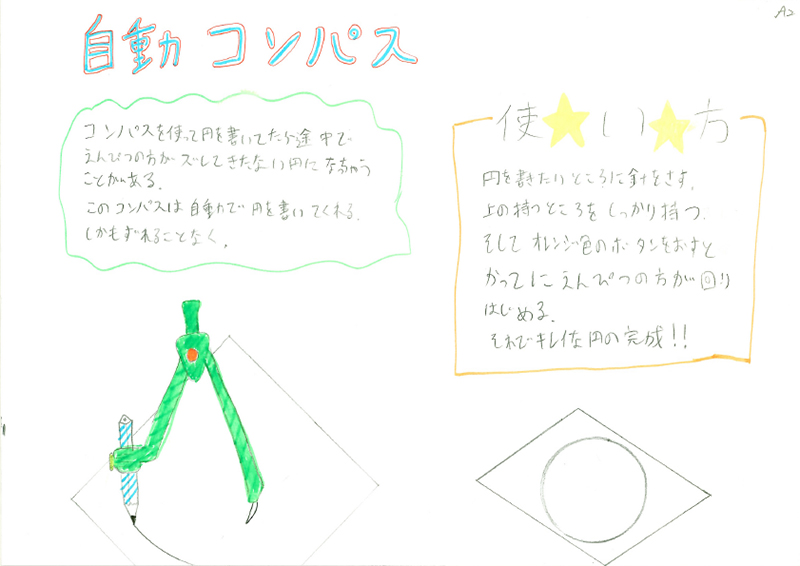 A2
自動コンパス
コンパスを使って円を書いてたら途中で
えんぴつの方がズレてきたない円になっちゃう
ことがある.
このコンパスは自動で円を書いてくれる.
しかもずれることなく.
使★い★方
円を書きたいところに針をさす.
上の持つところをしっかり持つ.
そしてオレンジ色のボタンをおすと
かってにえんぴつの方が回り
はじめる.
それでキレイな円の完成!!